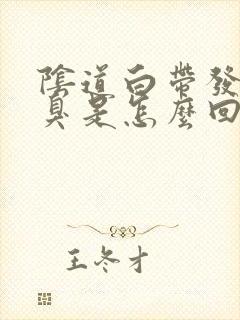 陰道白帶發
臭是怎麼回
王冬才